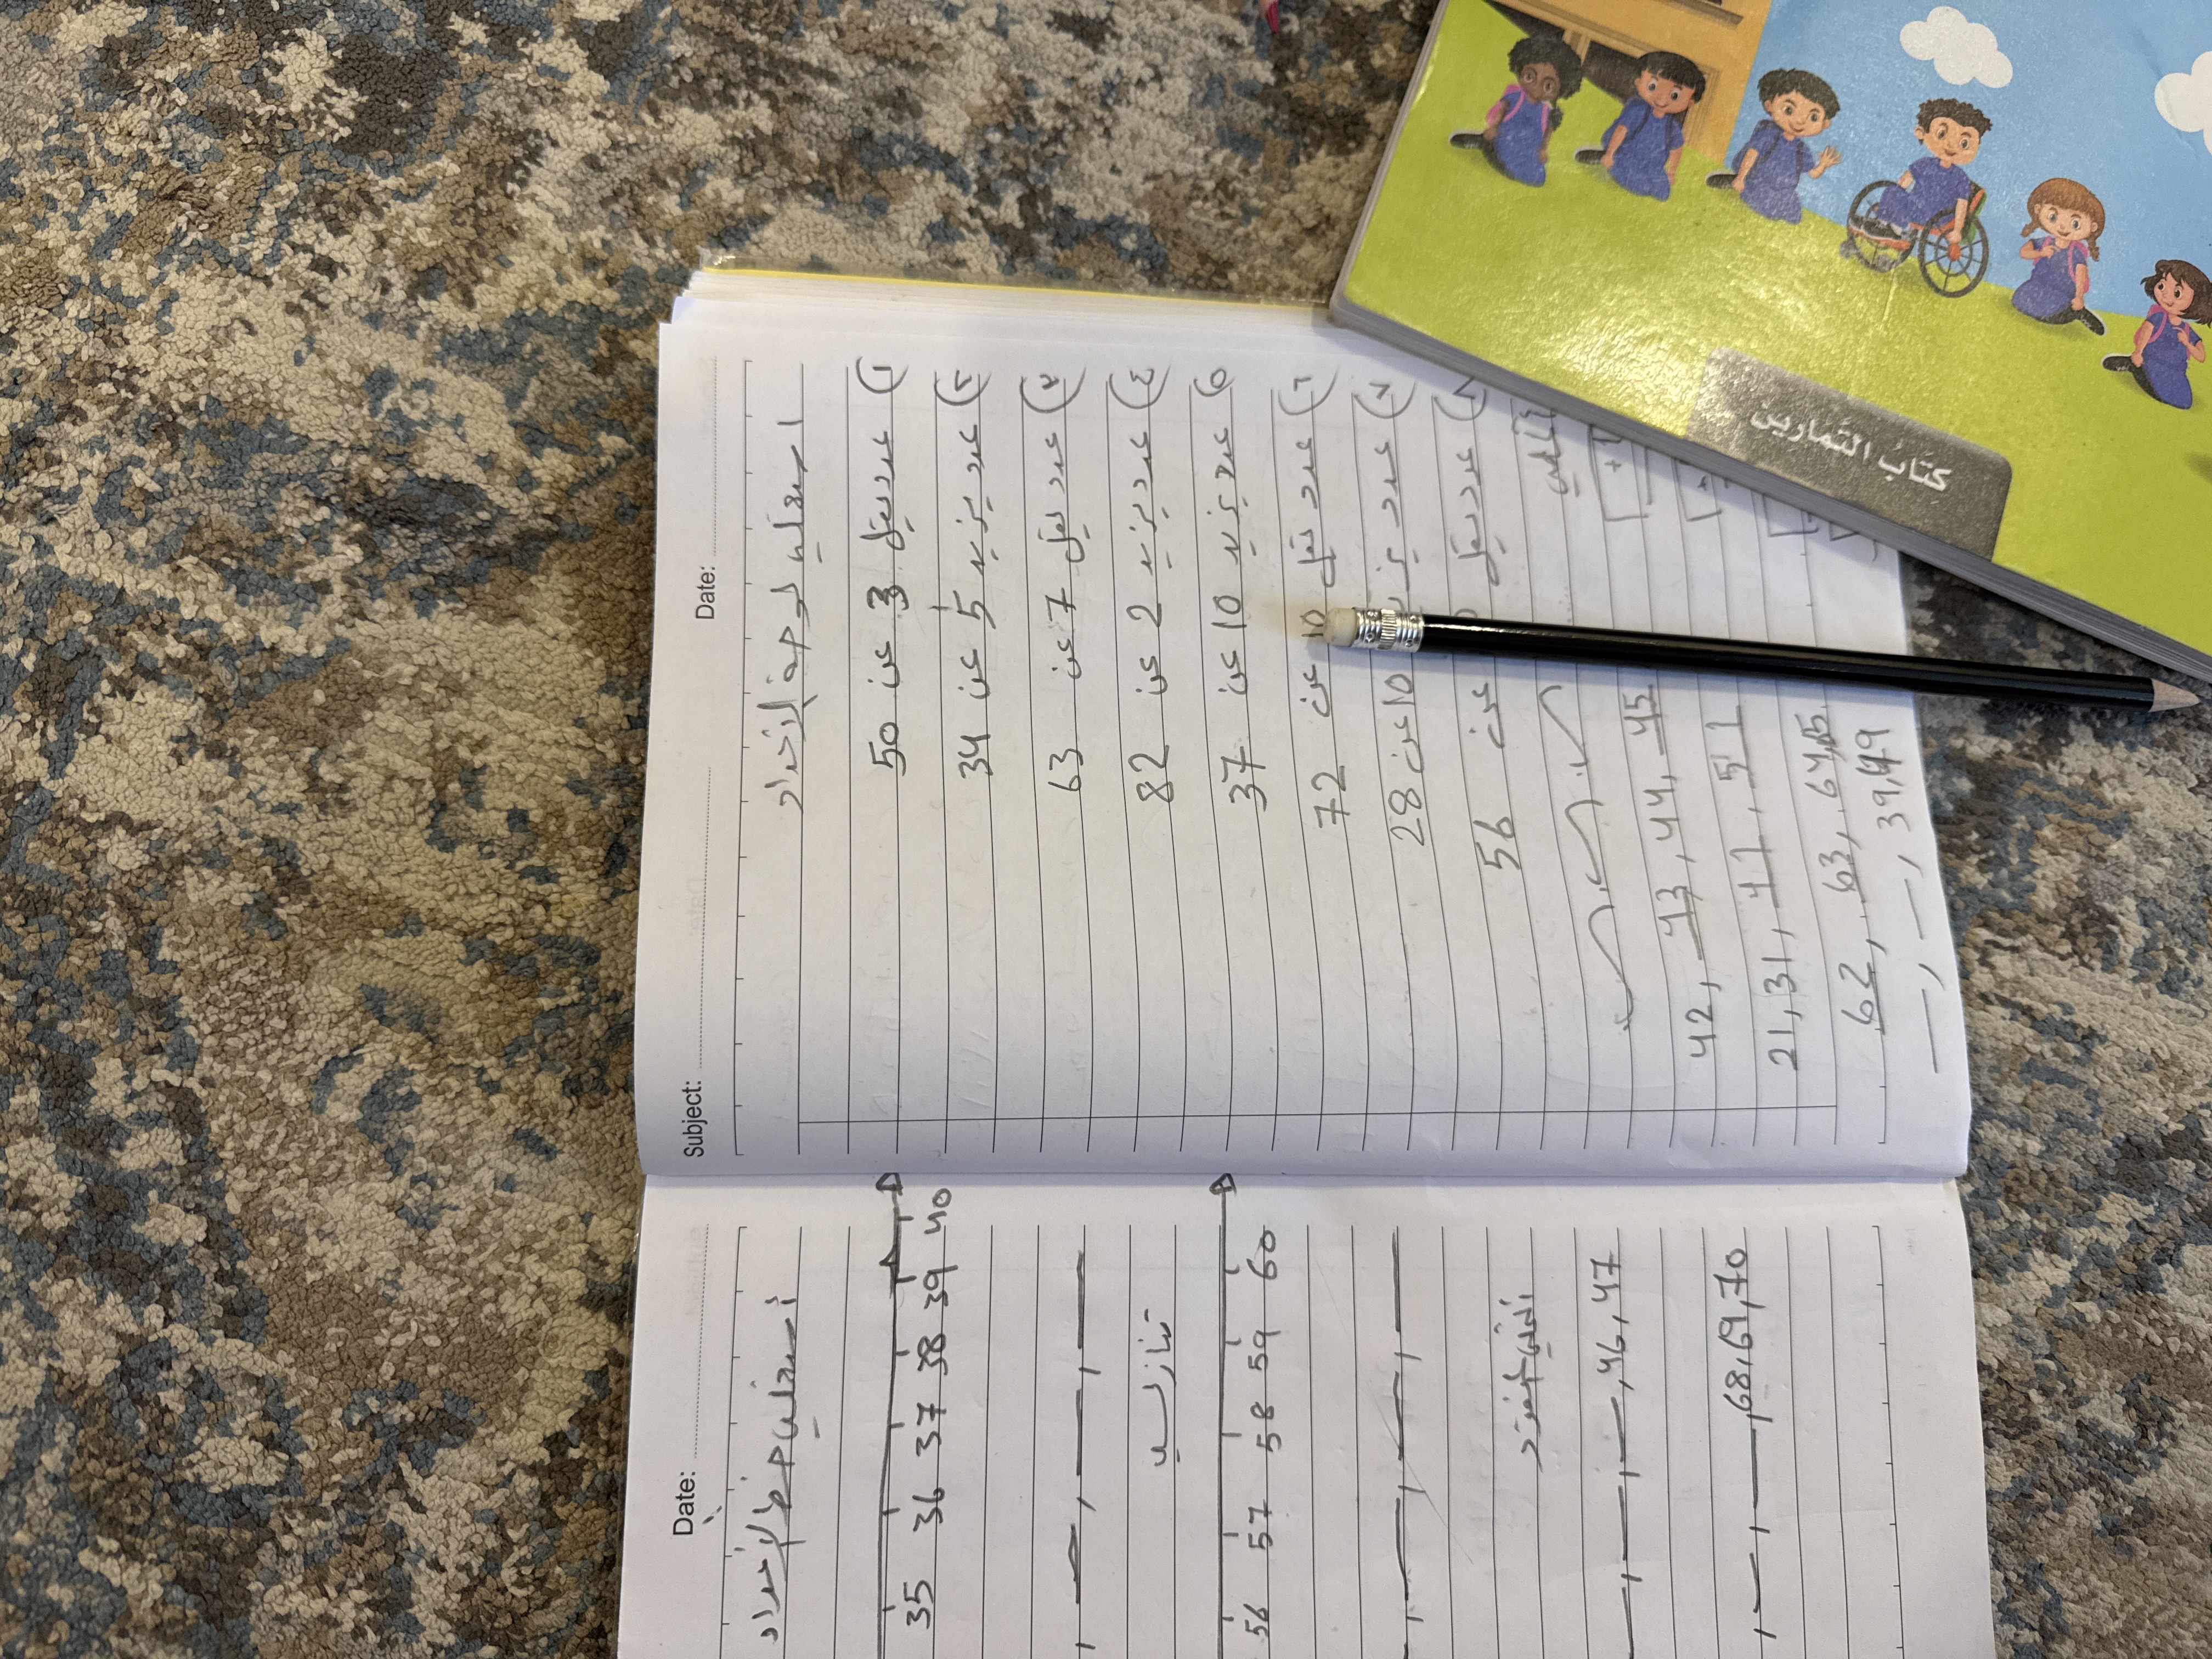 Subject: Date:
استعملي لوحة الأعداد
١) عدد يقل 3 عن 50
٢) عدد يزيد 5 عن 34
٣) عدد يقل 7 عن 63
٤) عدد يزيد 2 عن 82
٥) عدد يزيد 10 عن 37
٦) عدد يقل 10 عن 72
٧) عدد يزيد 10 عن 28
٨) عدد يقل عن 56
أكملي
42, 43, 44, 45
21, 31, 41, 51
62, 63, 64, 65
__, __, 39, 49
Date:
أستعملي خط الأعداد
35 36 37 38 39 40
__, __, __, __
تنازليا
56 57 58 59 60
__, __, __, __
__, __, __, 46, 47
__, __, 68, 69, 70
كتاب التمارين